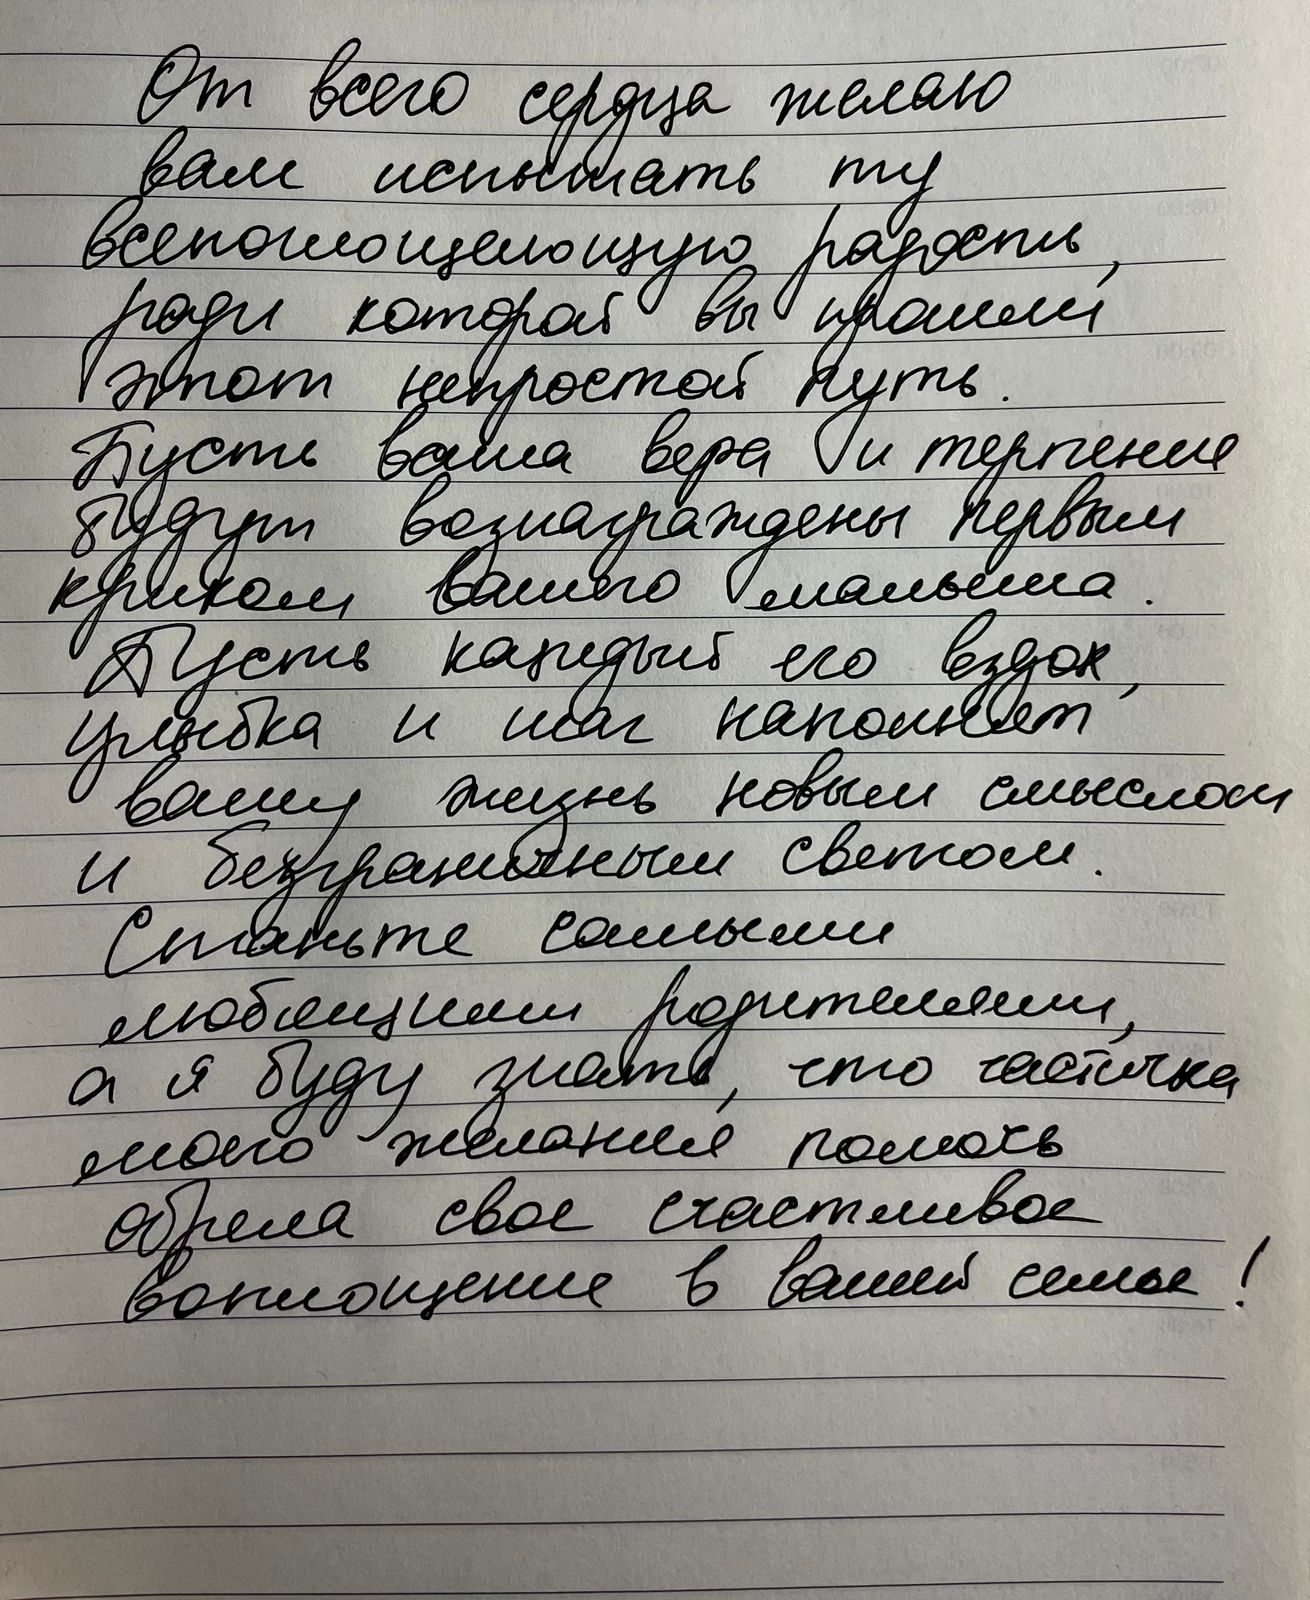 От всего сердца желаю
вам испытать ту
всепоглощающую радость,
ради которой вы прошли
этот непростой путь.
Пусть ваша вера и терпение
будут вознаграждены первым
криком вашего малыша.
Пусть каждый его вздох,
улыбка и шаг наполняет
вашу жизнь новым смыслом
и безграничным светом.
Станьте самыми
любящими родителями,
а я буду знать, что частичка
моего желания помочь
обрела свое счастливое
воплощение в вашей семье!